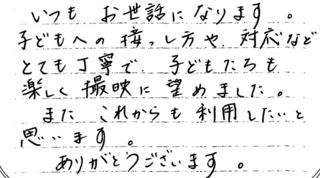 いつも お世話になります 。
子どもへの 接っし方や 対応など
とても丁寧で、子どもたちも
楽しく 撮映に 望めました。
また これからも 利用したいと
思います 。
ありがとうございます 。